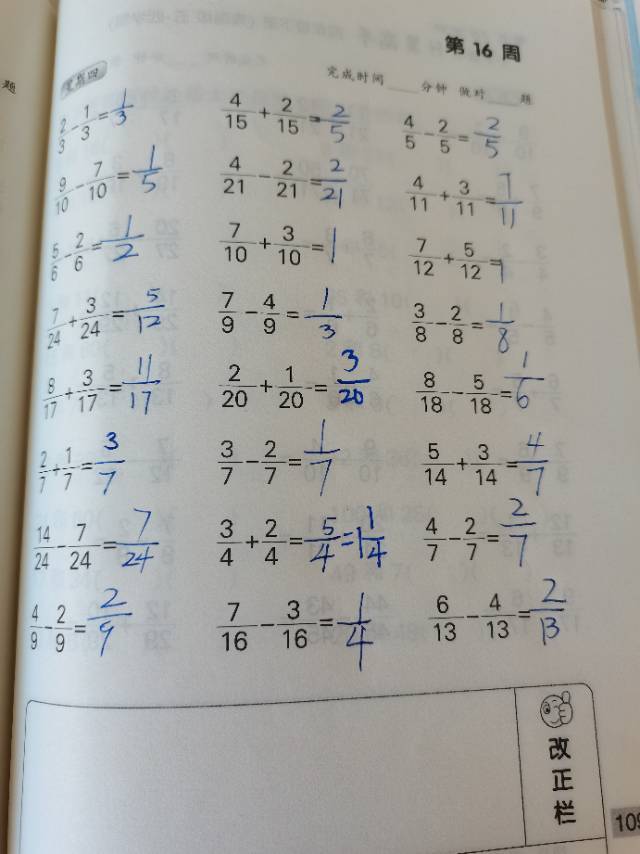 第 16 周
星期四
完成时间____分钟 做对____题
2/3 - 1/3 = 1/3 4/15 + 2/15 = 2/5 4/5 - 2/5 = 2/5
9/10 - 7/10 = 1/5 4/21 - 2/21 = 2/21 4/11 + 3/11 = 7/11
5/6 - 2/6 = 1/2 7/10 + 3/10 = 1 7/12 + 5/12 = 1
7/24 + 3/24 = 5/12 7/9 - 4/9 = 1/3 3/8 - 2/8 = 1/8
8/17 + 3/17 = 11/17 2/20 + 1/20 = 3/20 8/18 - 5/18 = 1/6
2/7 + 1/7 = 3/7 3/7 - 2/7 = 1/7 5/14 + 3/14 = 4/7
14/24 - 7/24 = 7/24 3/4 + 2/4 = 5/4 = 1 1/4 4/7 - 2/7 = 2/7
4/9 - 2/9 = 2/9 7/16 - 3/16 = 1/4 6/13 - 4/13 = 2/13
改正栏
109
题